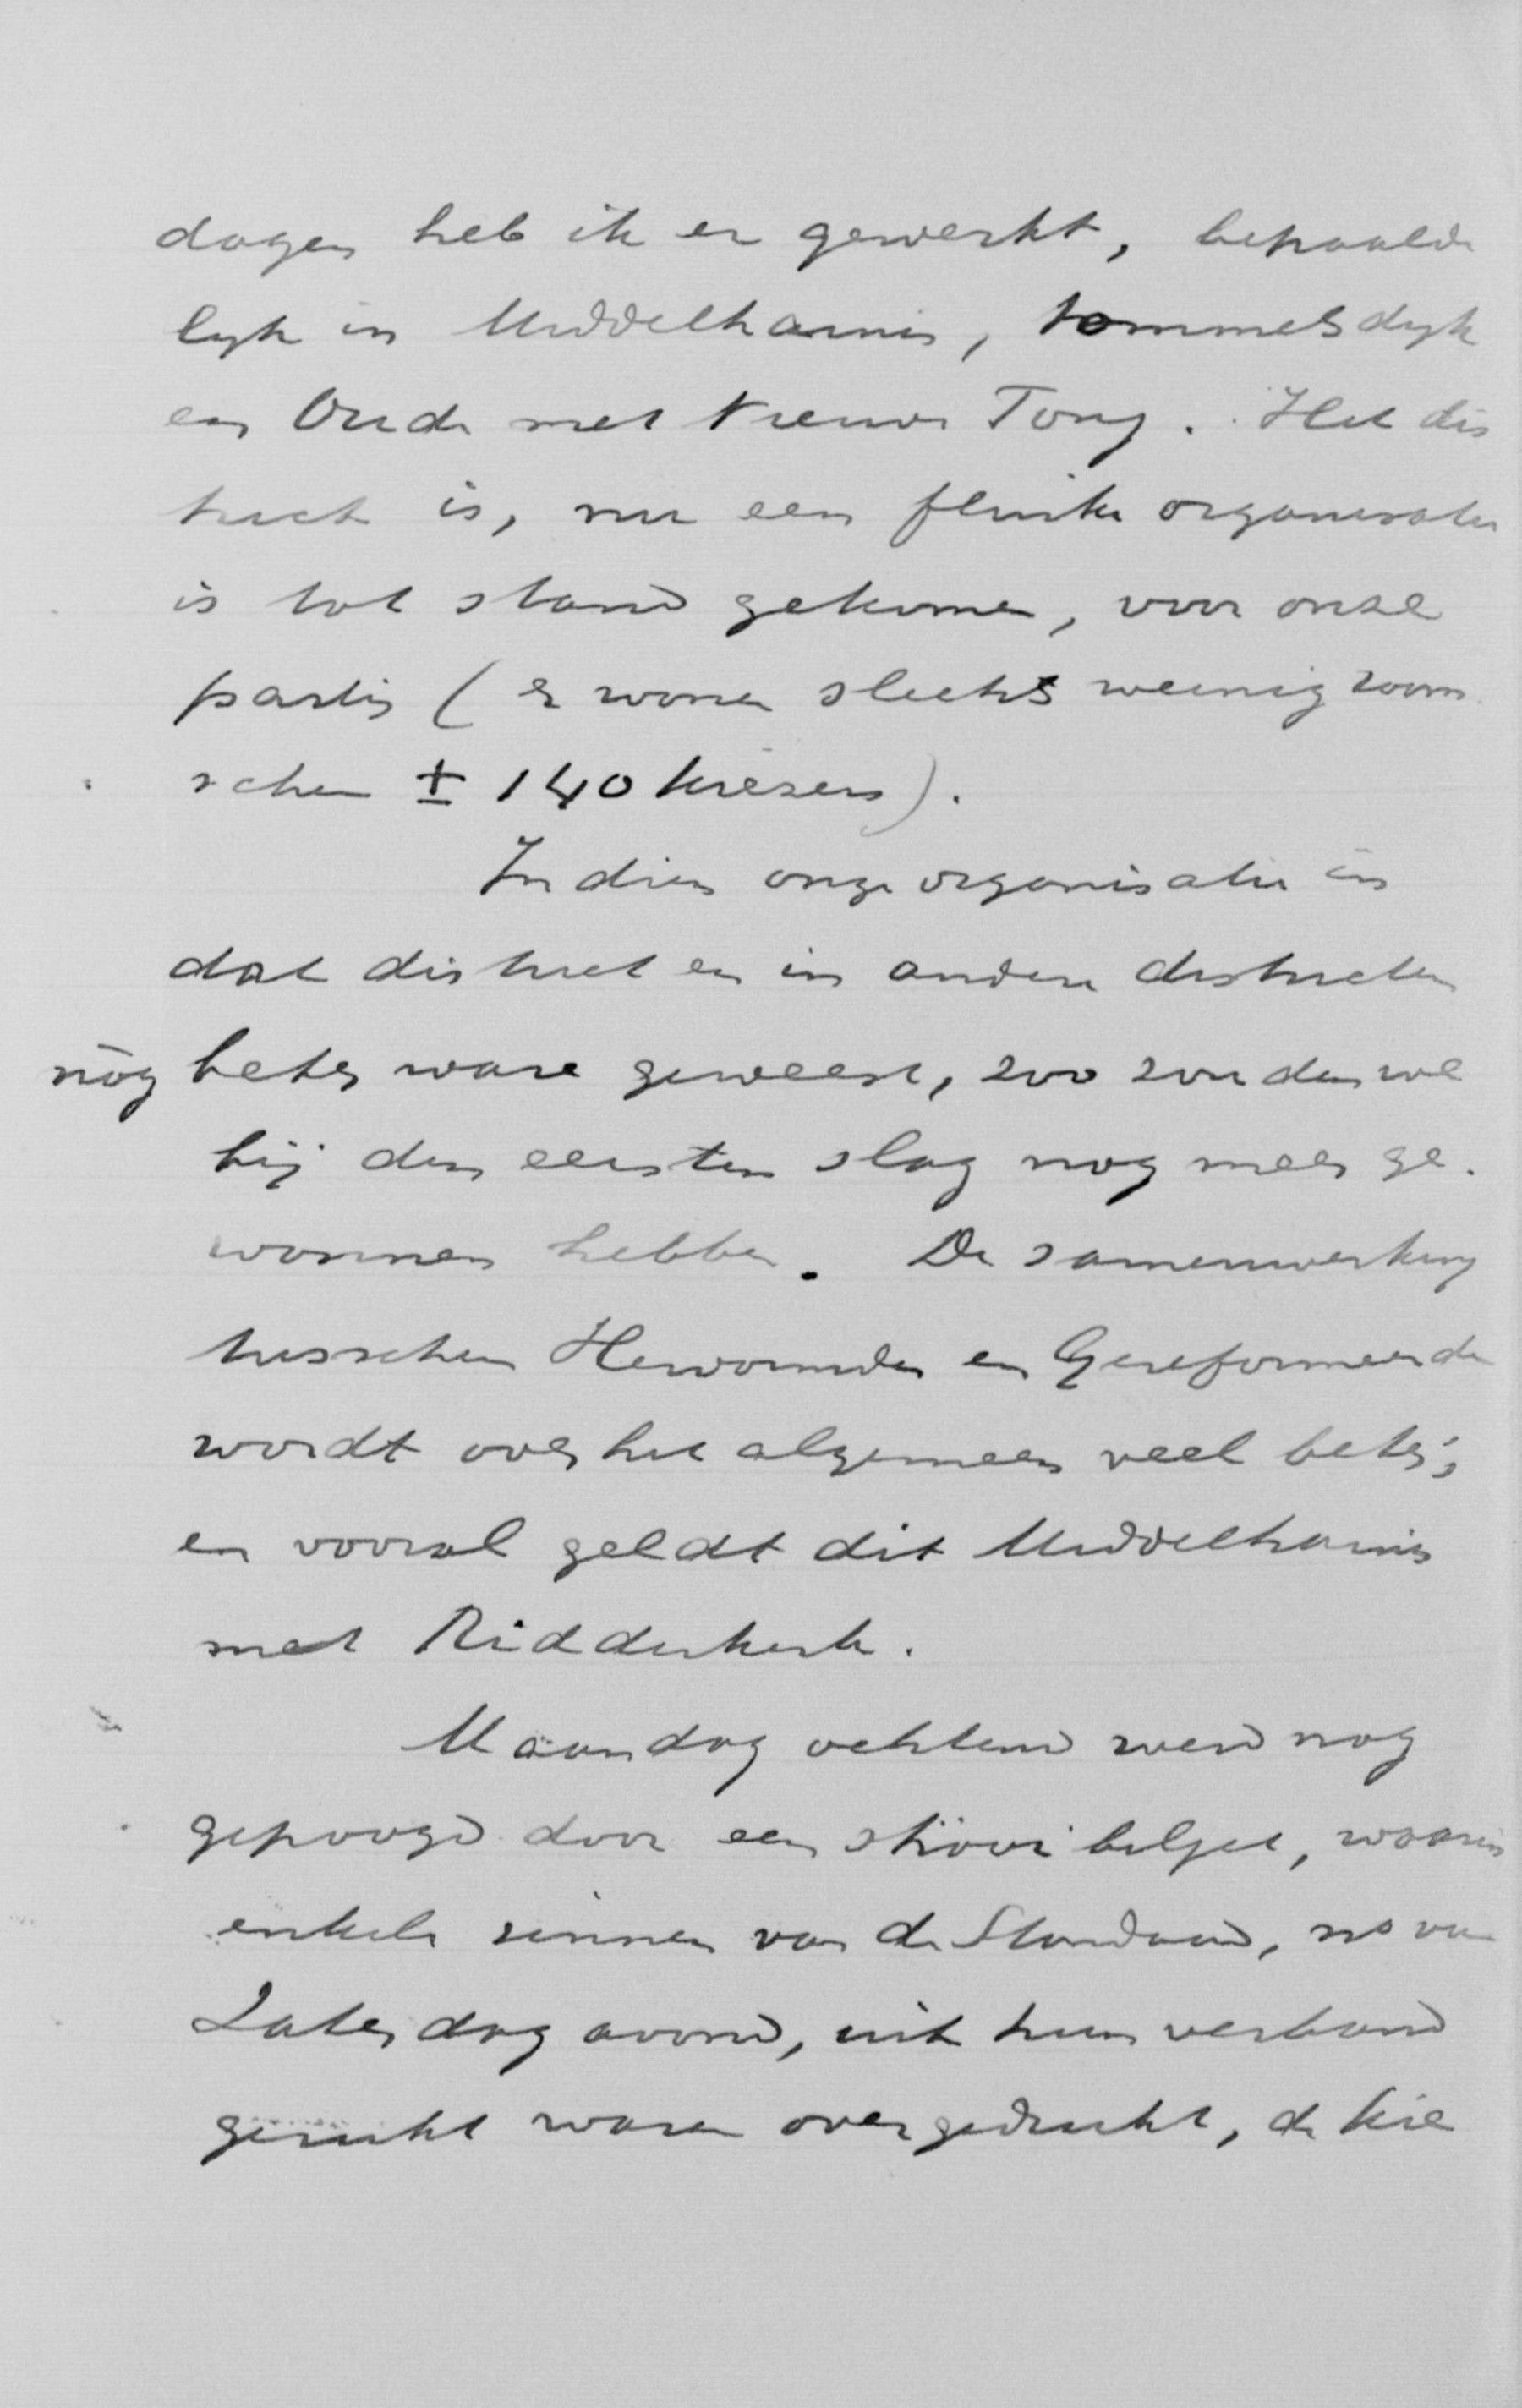 dagen heb ik er gewerkt, bepaalde
lyk in Middelharnis, Sommelsdyk
en Oude met Nieuwe Tong. Het dis
trict is, nu een flinke organisatie
is tot stand gekomen, voor onze
partij (er wonen slechts weinig room
schen ± 140 kiezers).
Indien onze organisatie in
dat district en in andere districten
nòg beter ware geweest, zoo zouden we
bij den eersten slag nog meer ge-
wonnen hebben. De samenwerking
tusschen Hervormden en Gereformeerde
wordt over het algemeen veel beter,
en vooral geldt dit Middelharnis
met Ridderkerk.
Maandag ochtend werd nog
gepoogd door een strooibiljet, waarin
enkele zinnen van de Standaard, no van
Zaterdag avond, uit hun verband
gerukt waren overgedrukt, de kie